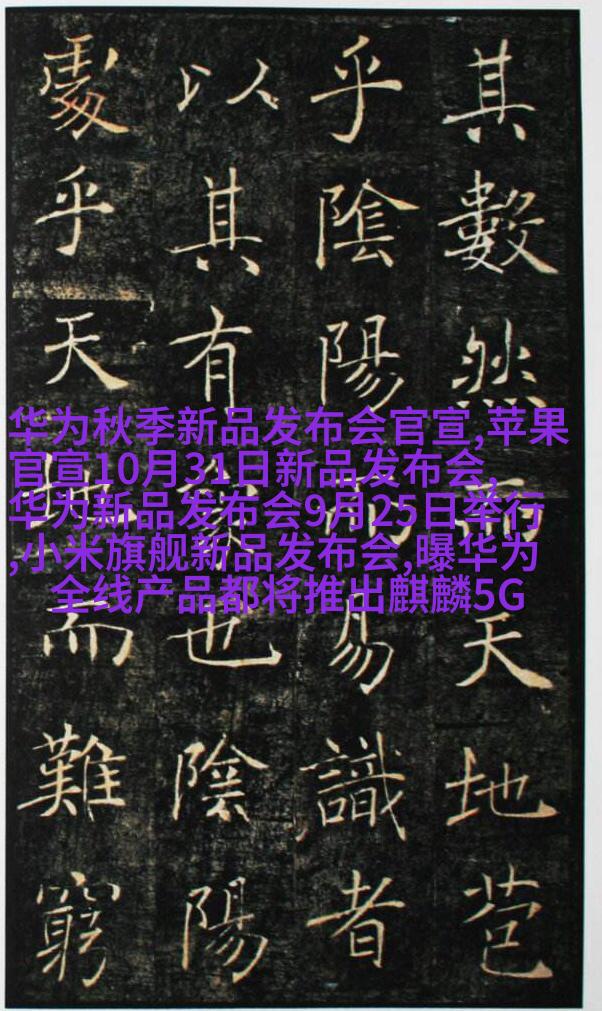 其數然而天地苞
乎陰陽而易識者
以其有象也陰陽
處乎天地而難窮
华为秋季新品发布会官宣,苹果
官宣10月31日新品发布会,
华为新品发布会9月25日举行
,小米旗舰新品发布会,曝华为
全线产品都将推出麒麟5G